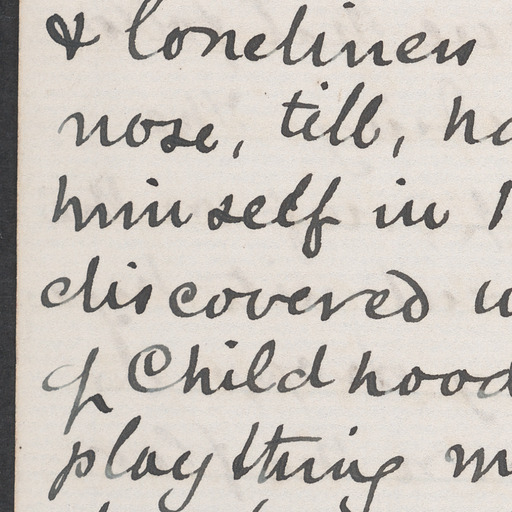 & loneliness
nose, till, ha
himself in
discovered
of Childhood
plaything m